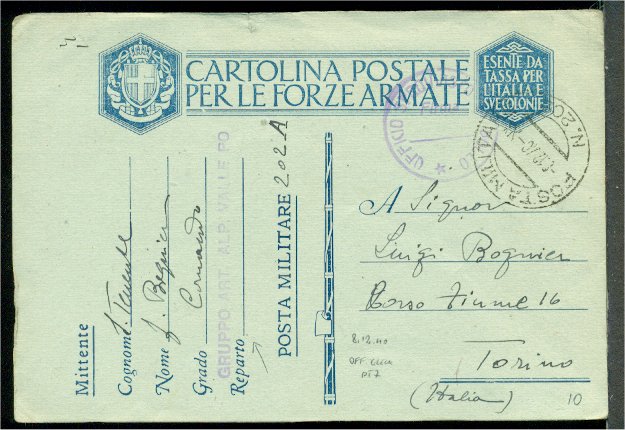 CARTOLINA POSTALE
PER LE FORZE ARMATE
ESENTE DA
TASSA PER
L'ITALIA E
SVE COLONIE
UFFICIO
POSTA MILITA
N. 202
A Signor
Luigi Bognier
Corso Fiume 16
Torino
(Italia)
8.12.40
PT7
10
Mittente
Cognome S. Tenente
Nome J. Bognier
Grado Comando
GRUPPO ART. ALP. VALLE PO
Reparto
POSTA MILITARE 202A